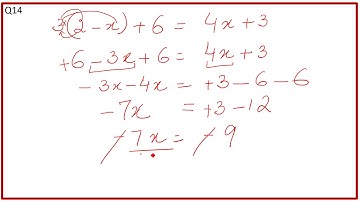 Q14
3(2-x)+6 = 4x+3
+6-3x+6 = 4x+3
-3x-4x = +3-6-6
-7x = +3-12
-7x = -9